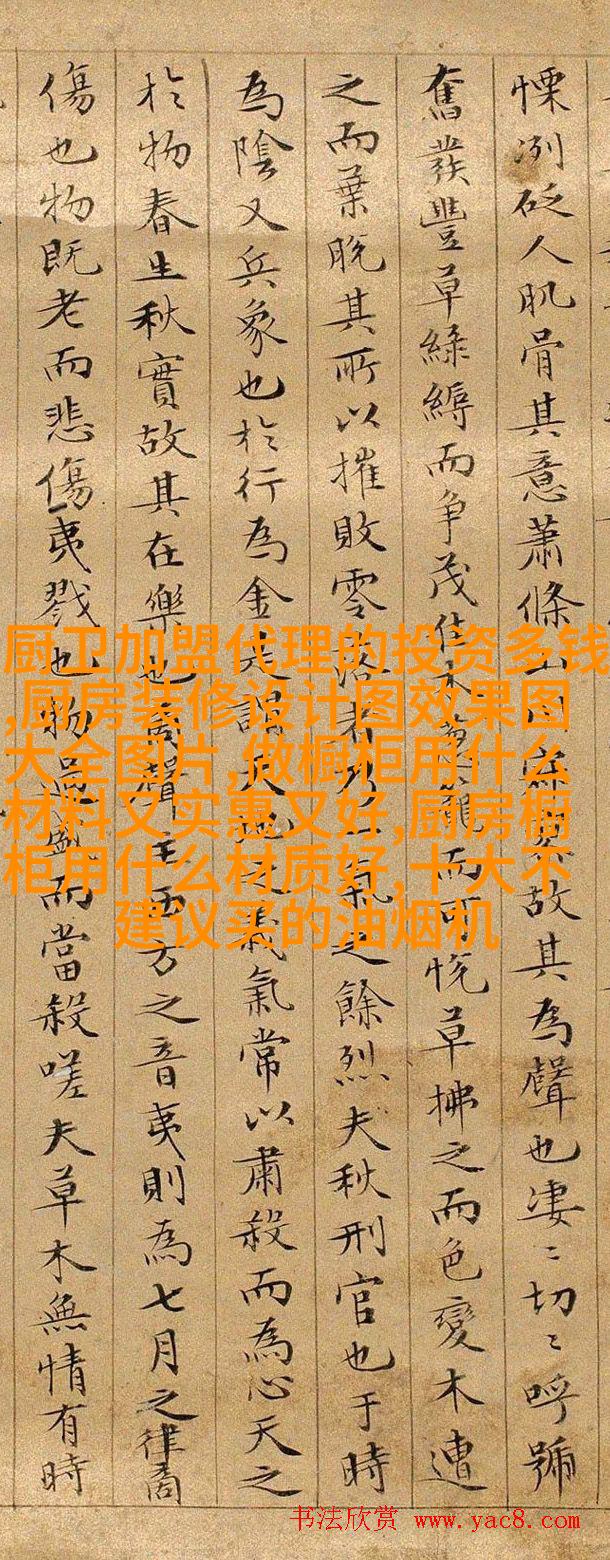 慄冽砭人肌骨其意蕭條山川寂寥故其為聲也淒〻切〻呼號
奮發豐草綠縟而爭茂佳木蔥蘢而可悅草拂之而色變木遭
之而葉脫其所以摧敗零落者乃一氣之餘烈夫秋刑官也于時
為陰又兵象也於行為金是謂天地之義氣常以肅殺而為心天之
於物春生秋實故其在樂也商聲主西方之音夷則為七月之律商
傷也物既老而悲傷夷戮也物過盛而當殺嗟夫草木無情有時
厨卫加盟代理的投资多钱
,厨房装修设计图效果图
大全图片,做橱柜用什么
材料又实惠又好,厨房橱
柜用什么材质好,十大不
建议买的油烟机
书法欣赏 www.yac8.com